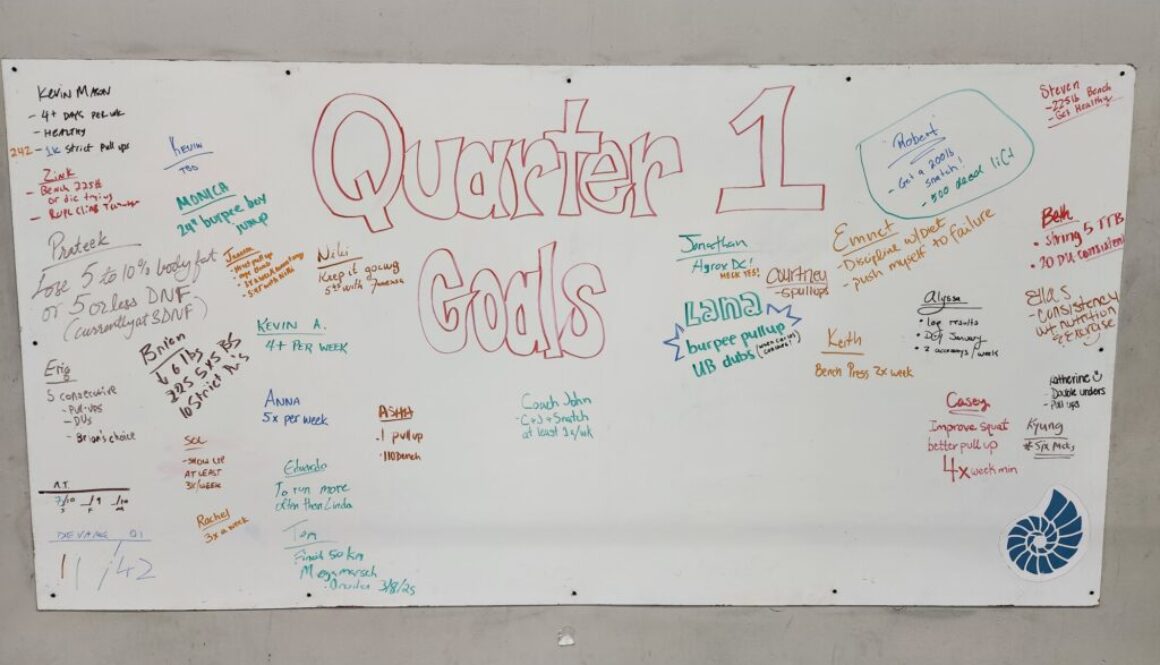 Quarter 1
Goals
Kevin Mason
- 4+ DAYS PER WK
- HEALTHY
242 - 1K strict pull ups
Zink
- Bench 225#
or die trying
- Rope Climb
Kevin
TBD
MONICA
24" burpee box
jump
Prateek
Lose 5 to 10% body fat
or 5 or less DNF
(currently at 3DNF)
- strict pull up
Niki
Keep it going
5x with
KEVIN A.
4+ PER WEEK
Brian
↓ 6 lbs
225 5x5 BS
10 Strict
Eric
5 consecutive
- Pull-ups
- DUs
- Brian's choice
ANNA
5x per week
ASHA
.1 pullup
.110 bench
Coach John
- C+J + Snatch
at least 1x/wk
- SHOW UP
AT LEAST
3X/WEEK
Eduardo
To run more
often than Linda
Rachel
3x a week
A.T.
7/10
DEVANG Q1
11/42
Tom
Finish 50 Km
3/8/25
Jonathan
Hyrox DC!
HECK YES!
COURTNEY
5 pullups
LANA
burpee pullup
UB dubs (when
Keith
Bench Press 2x week
Emnet
- Discipline w/ Diet
- push myself to failure
Robert
- Get a 200lb
snatch!
- 500 dead lift
Steven
- 225lb Bench
- Get Healthy
Beth
• string 5 TTB
• 20 DU consistent
Alyssa
• log results
• January
• 2 /week
Ella S
- Consistency
w/ nutrition
& Exercise
Katherine
- Double unders
- Pull ups
Casey
Improve squat
better pull up
4x week min
Kyung